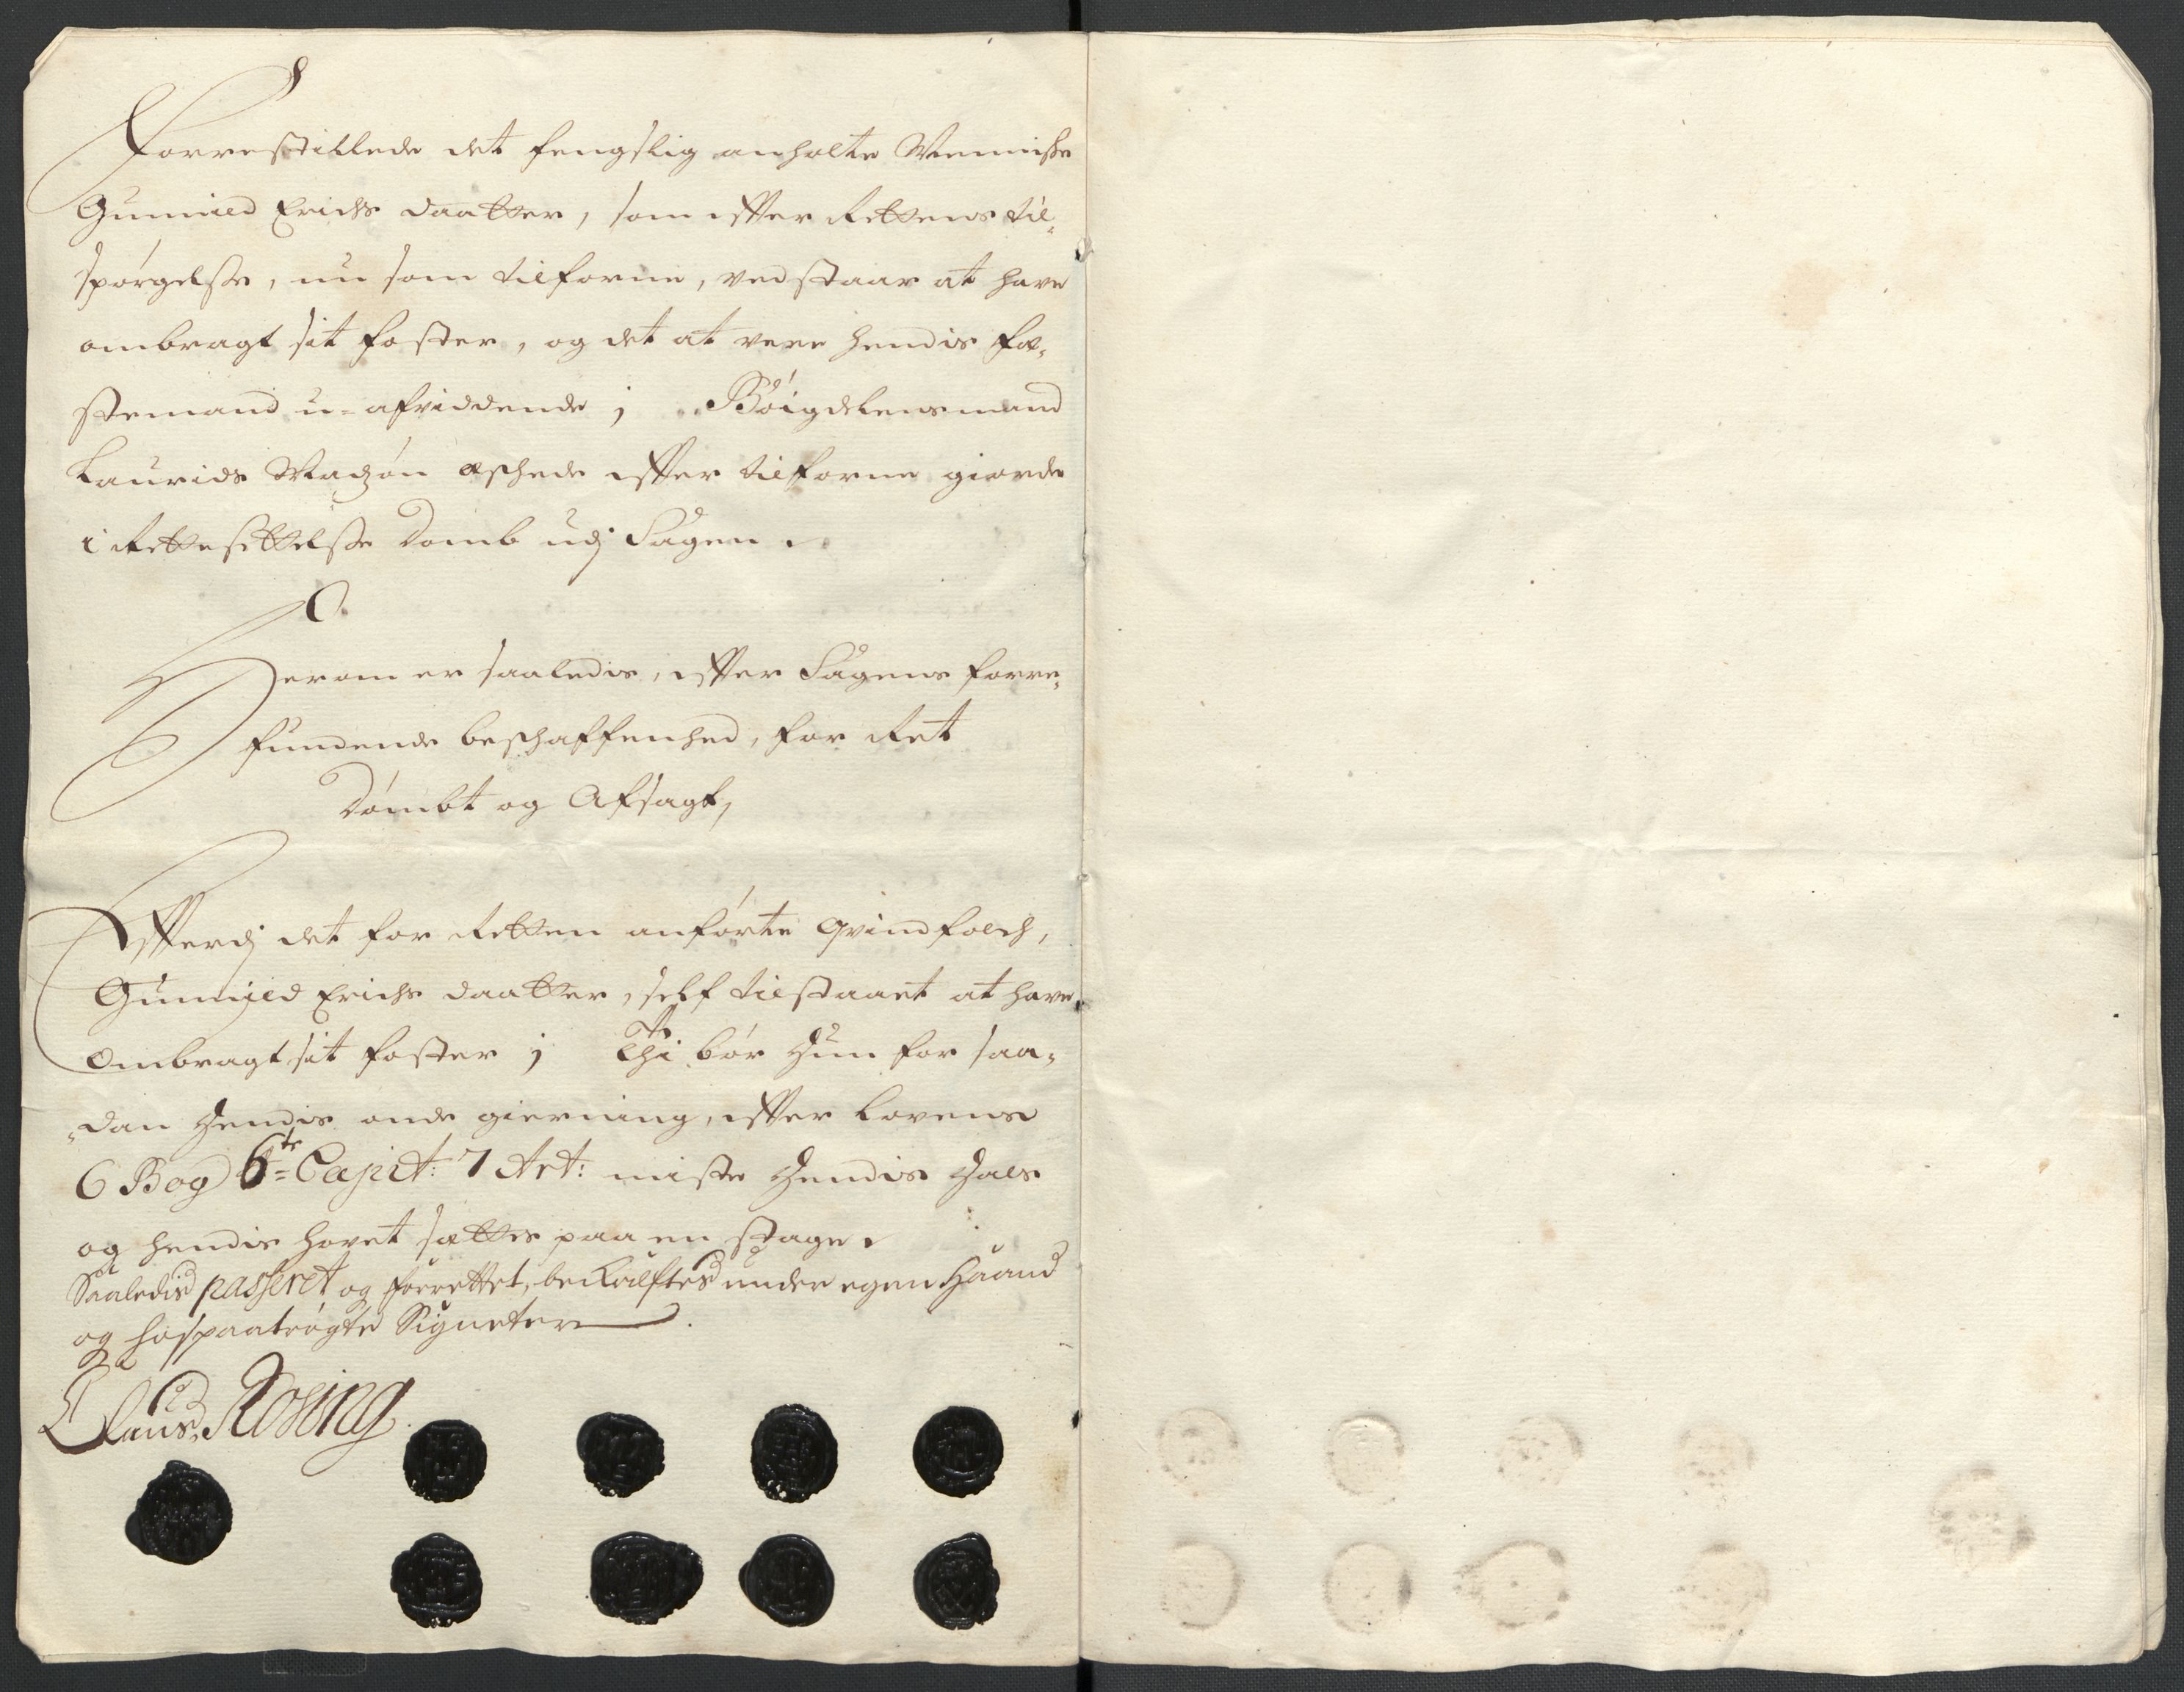 Forrestillede det fengslig anholte Menniske
Gunnild Erichs daatter, som effter Rettens til-
spørgelsse, nu som tilforne, vedstaar at have
ombragt sit foster, og det at vere hendis fæ-
stemand u-afviddende; Bøigdelensmand
Laurids Madzøn æskede effter tilforne giorde
i Rettesettelsse Domb udj Sagen.
Herom er saaledis, effter Sagens forre-
fundende beskaffenhed, for Ret
Dømbt og Afsagt,
Effterdj det for Retten anførte Qvindfolch,
Gunnild Erichs daatter, self tilstaaet at have
Ombragt sit foster; Thi bør Hun for saa-
dan Hendis onde gierning, effter Lovens
6 Bog 6te Capit: 7 Art: miste Hendis Hals
og hendis hovet sættes paa en stage.
Saaledis passeret og forrettet, bekræftes under egen Haand
og hospaatrøgte Signeter.
Claus Rosing